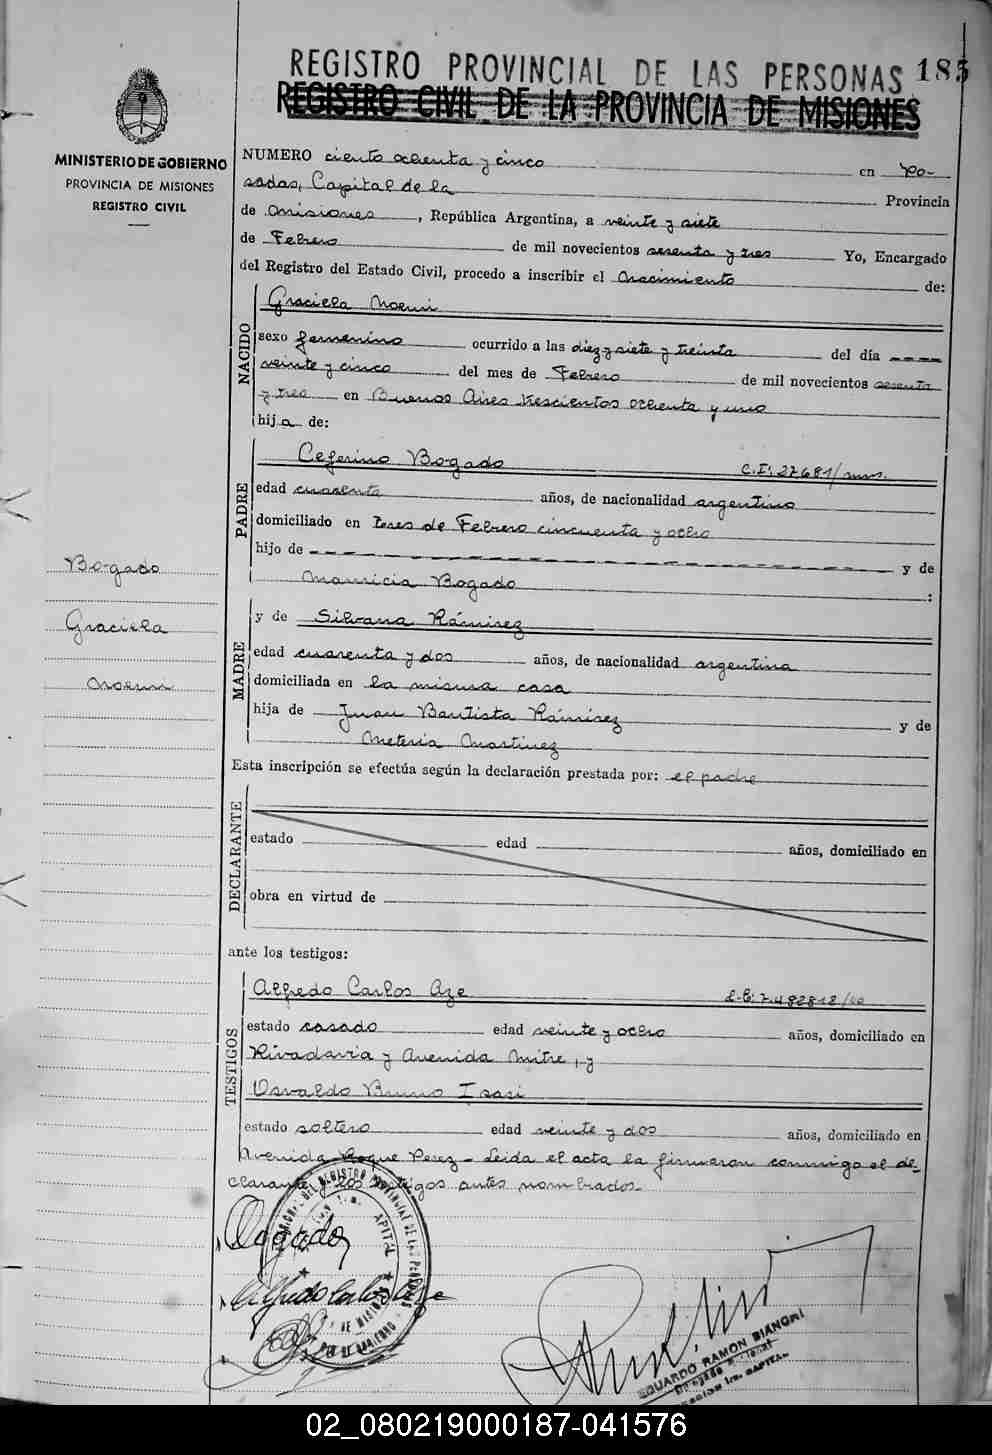 REGISTRO PROVINCIAL DE LAS PERSONAS 185
REGISTRO CIVIL DE LA PROVINCIA DE MISIONES
MINISTERIO DE GOBIERNO
PROVINCIA DE MISIONES
REGISTRO CIVIL
NUMERO ciento ochenta y cinco en Po-
sadas, Capital de la Provincia
de Misiones, República Argentina, a veinte y siete
de Febrero de mil novecientos sesenta y tres Yo, Encargado
del Registro del Estado Civil, procedo a inscribir el Nacimiento de:
NACIDO
Graciela Noemi
sexo femenino ocurrido a las diez y siete y treinta del día ----
veinte y cinco del mes de Febrero de mil novecientos sesenta
y tres en Buenos Aires trescientos ochenta y uno
hija de:
PADRE
Ceferino Bogado C.I: 27681/mns.
edad cuarenta años, de nacionalidad argentino
domiciliado en tres de Febrero cincuenta y ocho
hijo de ---- y de
Mauricia Bogado :
Bogado
Graciela
Noemi
MADRE
y de Silvana Ramirez
edad cuarenta y dos años, de nacionalidad argentina
domiciliada en la misma casa
hija de Juan Bautista Ramirez y de
Meteria Martinez
Esta inscripción se efectúa según la declaración prestada por: el padre
DECLARANTE
estado edad años, domiciliado en
obra en virtud de
ante los testigos:
TESTIGOS
Alfredo Carlos Aze
estado casado edad veinte y ocho años, domiciliado en
Rivadavia y Avenida Mitre, y
Osvaldo Bruno Isasi
estado soltero edad veinte y dos años, domiciliado en
Avenida Roque Perez - Leida el acta la firmaron conmigo el de-
clarante y los testigos antes nombrados
Bogado
Alfredo Carlos Aze
EDUARDO RAMON BIANGRI
02_080219000187-041576